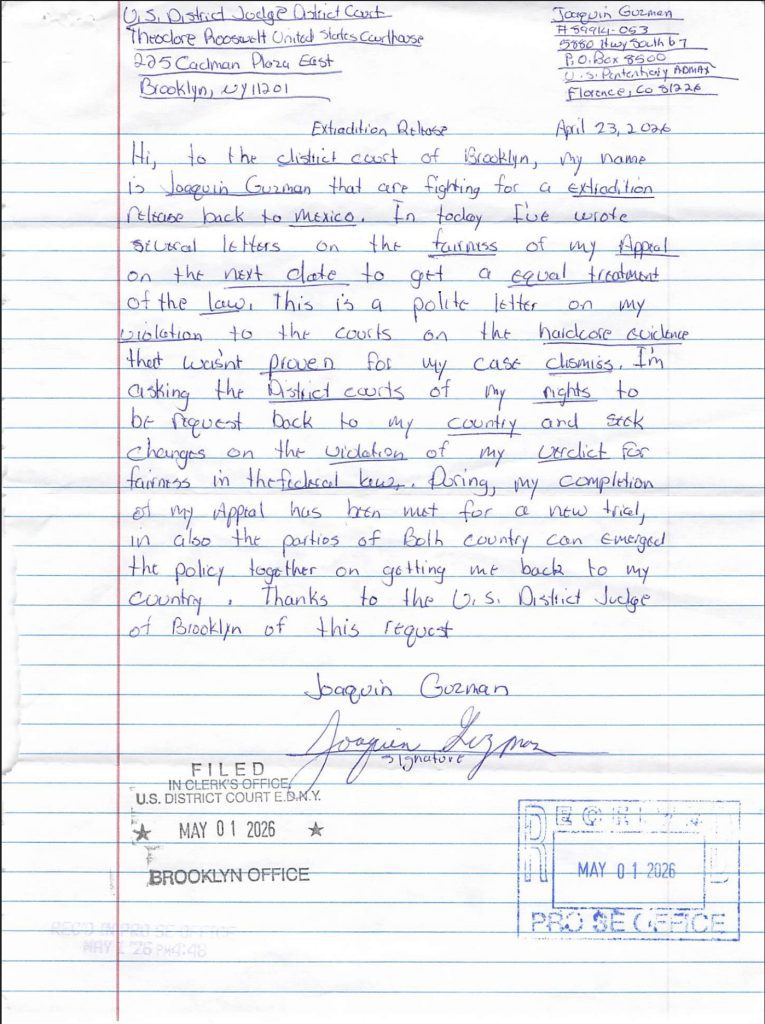 U.S. District Judge District Court
Theodore Roosevelt United States Courthouse
225 Cadman Plaza East
Brooklyn, NY 11201
Joaquin Guzman
# 89914-053
5880 Hwy South 67
P.O. Box 8500
U.S. Penitentiary ADMAX
Florence, Co 81226
Extradition Release
April 23, 2026
Hi, to the district court of Brooklyn, my name
is Joaquin Guzman that are fighting for a extradition
release back to Mexico. In today I've wrote
several letters on the fairness of my Appeal
on the next date to get a equal treatment
of the law. This is a polite letter on my
violation to the courts on the hardcore evidence
that wasn't proven for my case dismiss. I'm
asking the District courts of my rights to
be request back to my country and seek
changes on the violation of my verdict for
fairness in the federal law. During, my completion
of my Appeal has been met for a new trial,
in also the parties of Both country can emerged
the policy together on getting me back to my
country. Thanks to the U.S. District Judge
of Brooklyn of this request
Joaquin Guzman
Joaquin Guzman
signature
FILED
IN CLERK'S OFFICE
U.S. DISTRICT COURT E.D.N.Y.
★ MAY 01 2026 ★
BROOKLYN OFFICE
RECEIVED
MAY 01 2026
PRO SE OFFICE
REC'D IN PRO SE OFFICE
MAY 1 '26 PM4:48